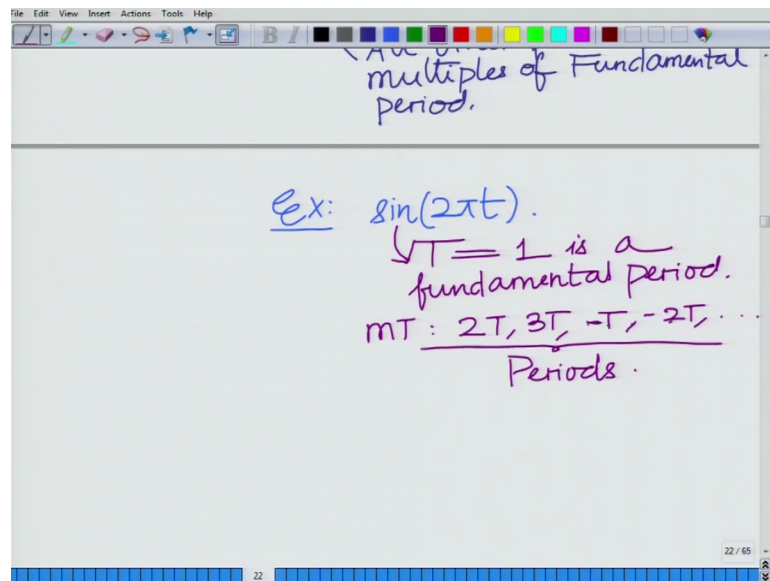 File Edit View Insert Actions Tools Help
B I
multiples of Fundamental
period.
Ex: sin(2πt).
T = 1 is a
fundamental period.
mT : 2T, 3T, -T, -2T, ...
Periods.
22 / 65
22